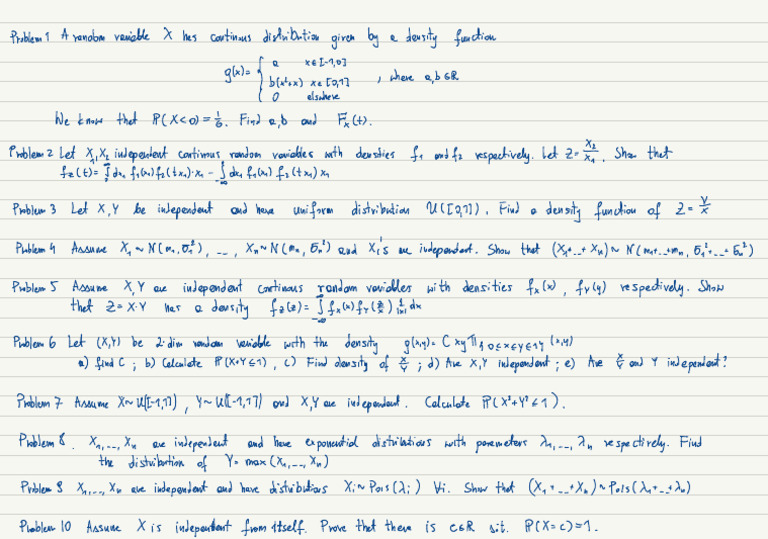 Problem 1 A random variable X has continous distribution given by a density function
g(x) = { a x∈[-1,0]
b(x²+x) x∈[0,1] , where a,b∈ℝ
0 elsewhere
We know that ℙ(X<0) = 1/6. Find a,b and F_X(t).
Problem 2 Let X₁,X₂ independent continous random variables with densities f₁ and f₂ respectively. Let Z = X₂/X₁. Show that
f_Z(t) = ∫ dx₁ f₁(x₁) f₂(t x₁)·x₁ - ∫ dx₁ f₁(x₁) f₂(t x₁) x₁
Problem 3 Let X,Y be independent and have uniform distribution U([0,1]). Find a density function of Z = Y/X
Problem 4 Assume X₁~N(m₁,σ₁²), ..., Xₙ~N(mₙ,σₙ²) and Xᵢ's are independent. Show that (X₁+...+Xₙ)~N(m₁+...+mₙ, σ₁²+...+σₙ²)
Problem 5 Assume X,Y are independent continous random variables with densities f_X(x), f_Y(y) respectively. Show
that Z=X·Y has a density f_Z(z) = ∫_{-∞}^{∞} f_X(x) f_Y(z/x) 1/|x| dx
Problem 6 Let (X,Y) be 2-dim random variable with the density g(x,y) = C xy 𝟙_{{0≤x≤y≤1}}(x,y)
a) find C ; b) Calculate ℙ(X+Y≤1) , c) Find density of X/Y ; d) Are X,Y independent ; e) Are X/Y and Y independent?
Problem 7 Assume X~U([-1,1]) , Y~U([-1,1]) and X,Y are independent. Calculate ℙ(X²+Y²≤1).
Problem 8. X₁,...,Xₙ are independent and have exponential distributions with parameters λ₁,...,λₙ respectively. Find
the distribution of Y = max(X₁,...,Xₙ)
Problem 9 X₁,...,Xₙ are independent and have distributions Xᵢ~Pois(λᵢ) ∀i. Show that (X₁+...+Xₙ)~Pois(λ₁+...+λₙ)
Problem 10 Assume X is independent from itself. Prove that there is c∈ℝ s.t. ℙ(X=c)=1.